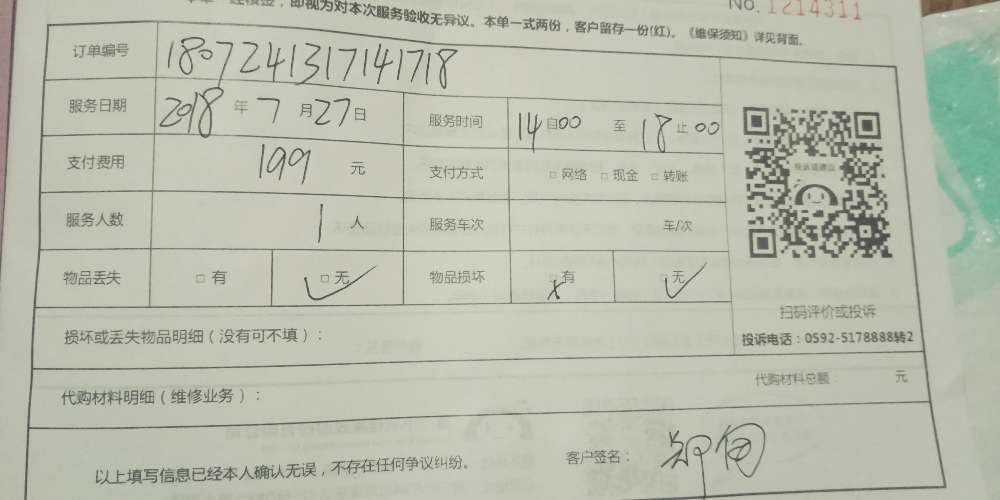 即视为对本次服务验收无异议。本单一式两份，客户留存一份(红)。《维保须知》详见背面。
No. 1214311
订单编号 1807241317141718
服务日期 2018 年 7 月 27 日 服务时间 14 自 00 至 18 止 00
支付费用 199 元 支付方式 □ 网络 □ 现金 □ 转账
服务人数 1 人 服务车次 车/次
物品丢失 □ 有 □ 无 ✓ 物品损坏 □ 有 x □ 无 ✓
投诉或建议
扫码评价或投诉
投诉电话：0592-5178888转2
损坏或丢失物品明细（没有可不填）：
代购材料明细（维修业务）：
代购材料总额： 元
以上填写信息已经本人确认无误，不存在任何争议纠纷。
客户签名：